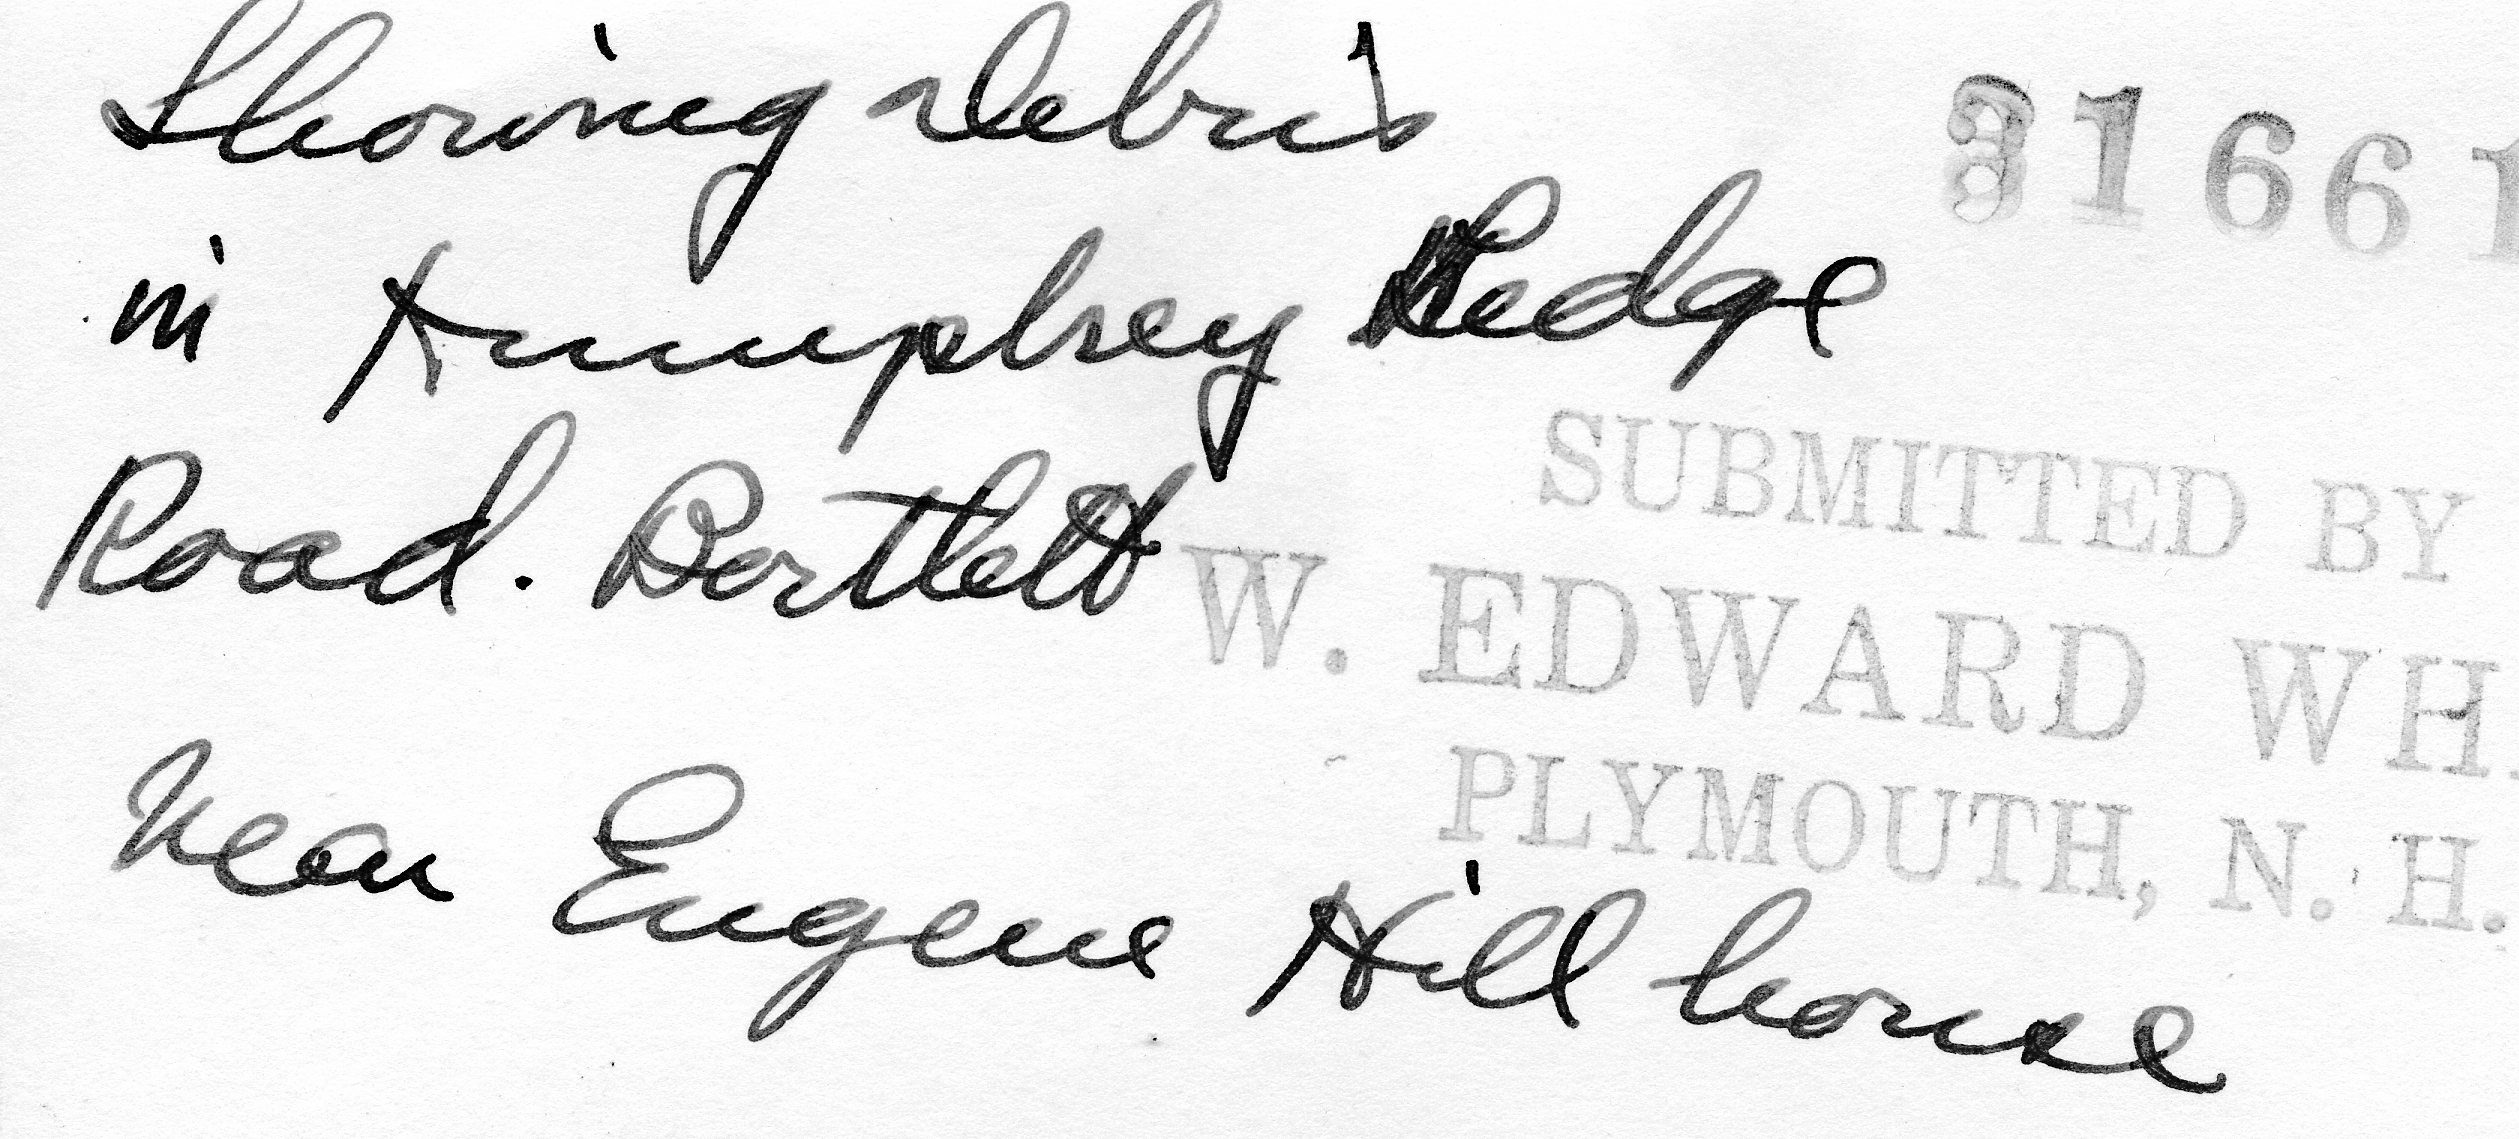 Showing debris
in Humphrey Ledge
Road. Bartlett
Near Eugene Hill house
31661
SUBMITTED BY
W. EDWARD WH
PLYMOUTH, N. H.